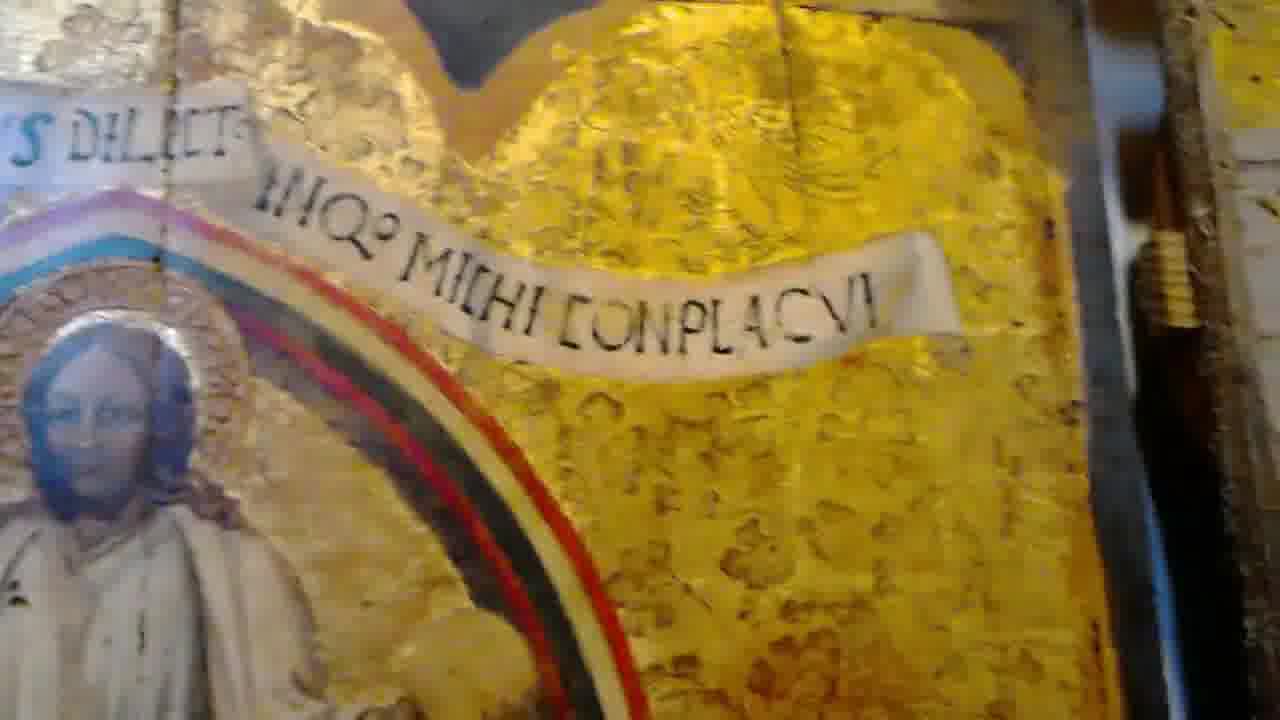 S DILECT
INQo MICHI CONPLACVI